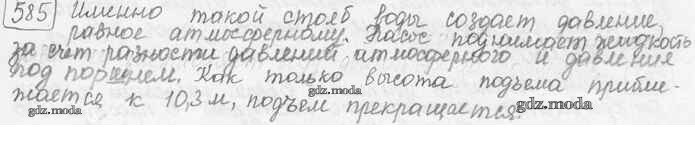 585 Именно такой столб воды создает давление,
равное атмосферному. Насос поднимает жидкость
за счет разности давлений атмосферного и давления
под поршнем. Как только высота подъема прибли-
gdz.moda
жается к 10,3 м, подъем прекращается.
gdz.moda gdz.moda